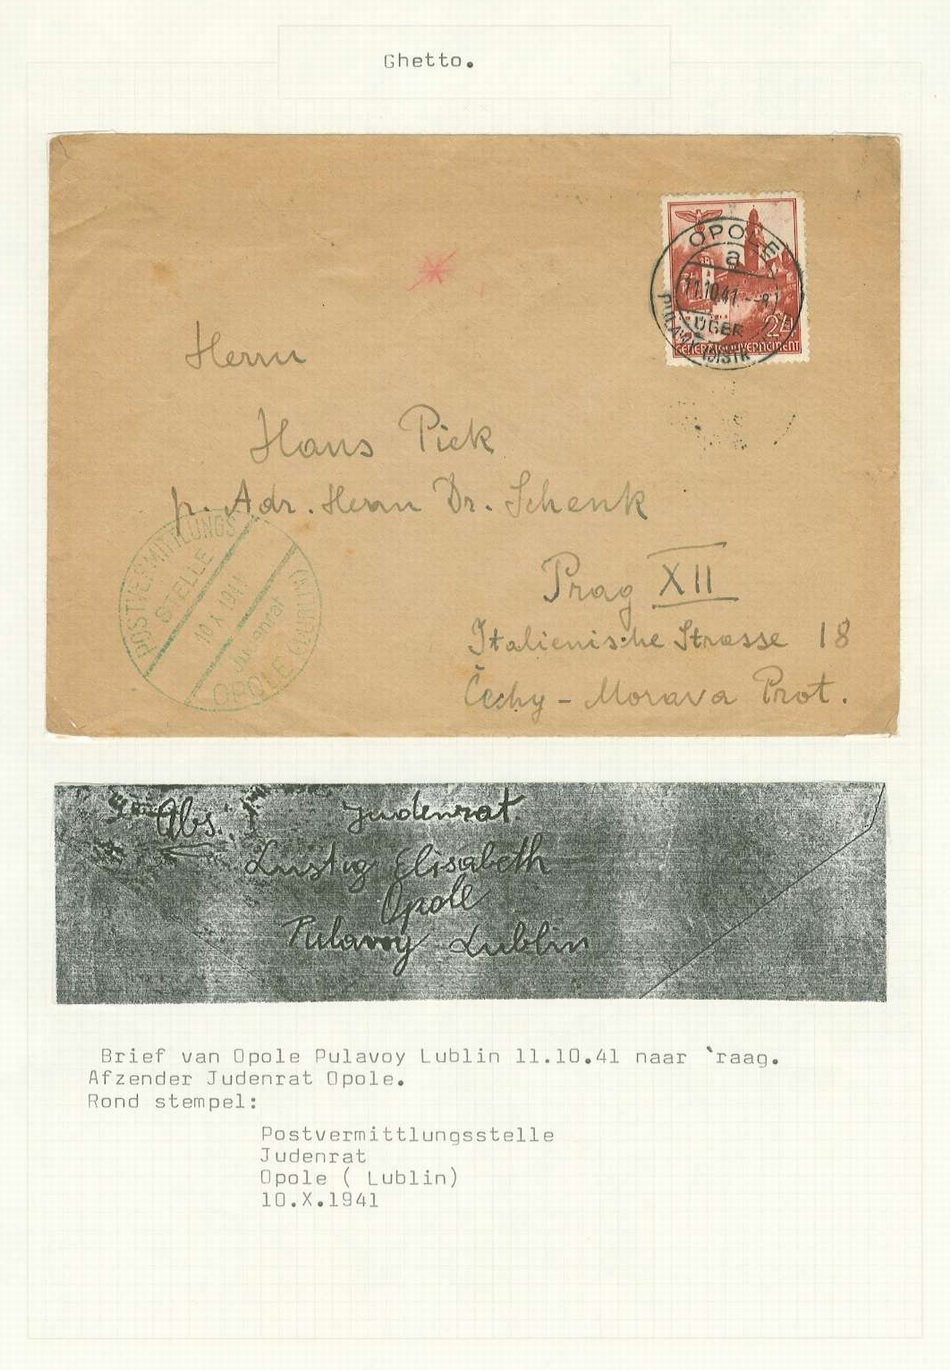 Ghetto.
OPOLE
a
11.10.41
PULAWY (DISTR
24
GENERALGOUVERNEMENT
Herrn
Hans Pick
p. Adr. Herrn Dr. Schenk
Prag XII
Italienische Strasse 18
Čechy - Morava Prot.
POSTVERMITTLUNGS
STELLE
10.X.1941
Judenrat
OPOLE (LUBLIN)
Abs. Judenrat.
Lustig Elisabeth
Opole
Pulavoy Lublin
Brief van Opole Pulavoy Lublin 11.10.41 naar `raag.
Afzender Judenrat Opole.
Rond stempel:
Postvermittlungsstelle
Judenrat
Opole ( Lublin)
10.X.1941